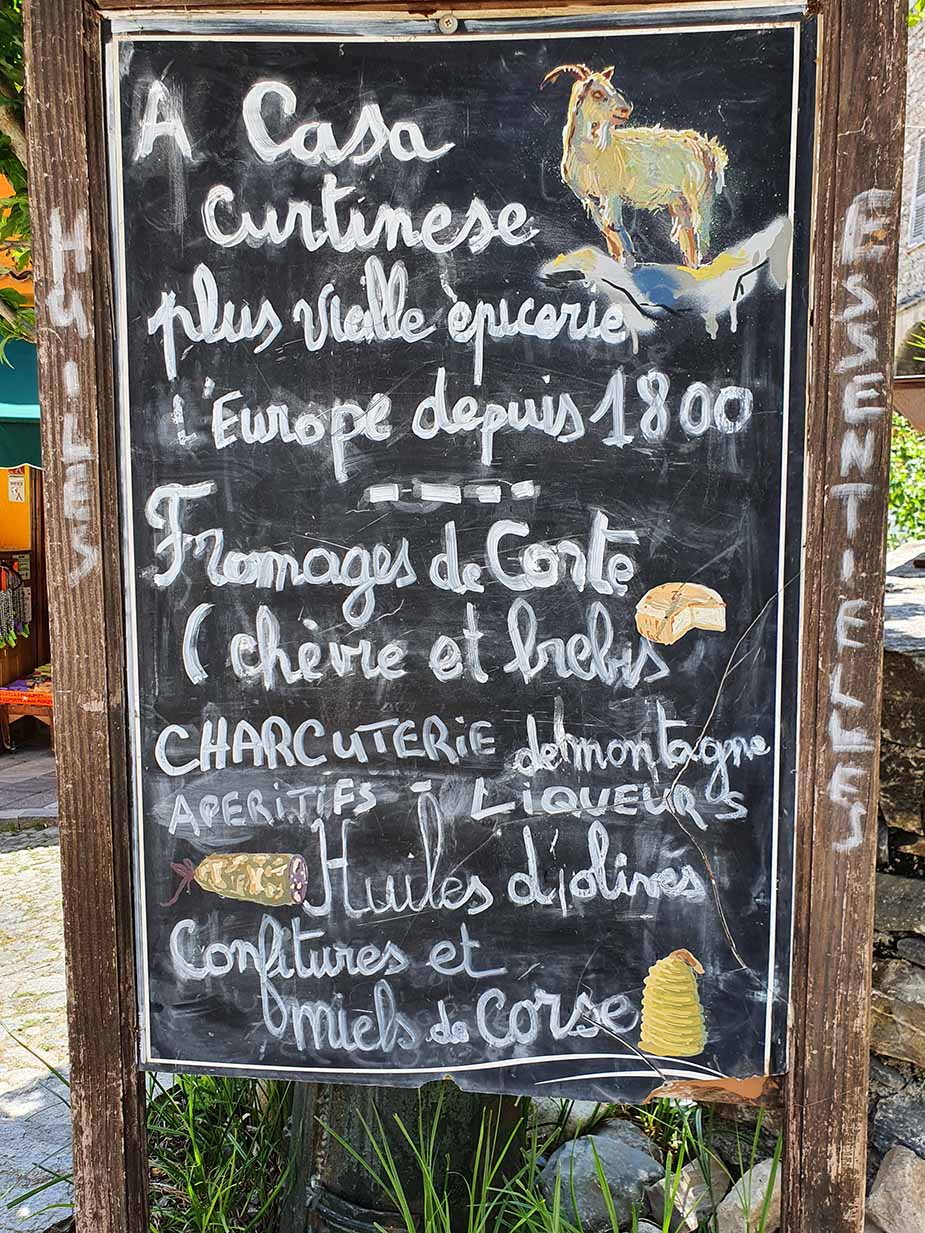 A Casa
Curtinese
plus vieille èpicerie
l'Europe depuis 1800
Fromages de Corte
(chèvre et brebis
CHARCUTERIE de montagne
APERITIFS - LIQUEURS
Huiles d'olives
Confitures et
miels de Corse
HUILES
ESSENTIELLES